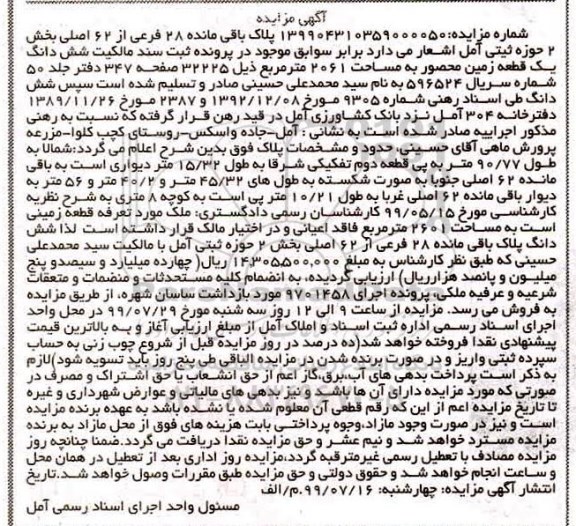 آگهی مزایده
شماره مزایده:۱۳۹۹۰۴۳۱۰۳۵۹۰۰۰۰۵۰ پلاک باقی مانده ۲۸ فرعی از ۶۲ اصلی بخش
۲ حوزه ثبتی آمل اشعار می دارد برابر سوابق موجود در پرونده ثبت سند مالکیت شش دانگ
یک قطعه زمین محصور به مساحت ۲۰۶۱ مترمربع ذیل ۳۲۲۲۵ صفحه ۳۴۷ دفتر جلد ۵۰
شماره سریال ۵۹۶۵۲۴ به نام سید محمدعلی حسینی صادر و تسلیم شده است سپس شش
دانگ طی اسناد رهنی شماره ۹۳۰۵ مورخ ۱۳۹۲/۱۲/۰۸ و ۲۳۸۷ مورخ ۱۳۸۹/۱۱/۲۶
دفترخانه ۳۰۴ آمل نزد بانک کشاورزی آمل در قید رهن قرار گرفته که نسبت به رهنی
مذکور اجراییه صادر شده است به نشانی : آمل-جاده واسکس-روستای کچب کلوا-مزرعه
پرورش ماهی آقای حسینی حدود و مشخصات پلاک فوق بدین شرح اعلام می گردد:شمالا به
طول ۹۰/۷۷ متر به پی قطعه دوم تفکیکی شرقا به طول ۱۵/۳۲ متر دیواری است به باقی
مانده ۶۲ اصلی جنوبا به صورت شکسته به طول های ۴۵/۳۲ متر و ۴۰/۲ متر و ۵۶ متر به
دیوار باقی مانده ۶۲ اصلی غربا به طول ۱۰/۲۱ متر پی است به کوچه ۸ متری به شرح نظریه
کارشناسی مورخ ۹۹/۰۵/۱۵ کارشناسان رسمی دادگستری: ملک مورد تعرفه قطعه زمینی
است به مساحت ۲۰۶۱ مترمربع فاقد اعیانی و در اختیار مالک قرار داشته است لذا شش
دانگ پلاک باقی مانده ۲۸ فرعی از ۶۲ اصلی بخش ۲ حوزه ثبتی آمل با مالکیت سید محمدعلی
حسینی که طبق نظر کارشناس به مبلغ ۱۴,۳۰۵۵۰۰,۰۰۰ ریال( چهارده میلیارد و سیصدو پنج
میلیون و پانصد هزارریال) ارزیابی گردیده، به انضمام کلیه مستحدثات و منضمات و متعلقات
شرعیه و عرفیه ملکی، پرونده اجرای ۹۷۰۱۴۵۸ مورد بازداشت ساسان شهره، از طریق مزایده
به فروش می رسد. مزایده از ساعت ۹ الی ۱۲ روز سه شنبه مورخ ۹۹/۰۷/۲۹ در محل واحد
اجرای اسناد رسمی اداره ثبت اسناد و املاک آمل از مبلغ ارزیابی آغاز و به بالاترین قیمت
پیشنهادی نقدا فروخته خواهد شد(ده درصد در روز مزایده قبل از شروع چوب زنی به حساب
سپرده ثبتی واریز و در صورت برنده شدن در مزایده الباقی طی پنج روز باید تسویه شود)لازم
به ذکر است پرداخت بدهی های آب،برق،گاز اعم از حق انشعاب یا حق اشتراک و مصرف در
صورتی که مورد مزایده دارای آن ها باشد و نیز بدهی های مالیاتی و عوارض شهرداری و غیره
تا تاریخ مزایده اعم از این که رقم قطعی آن معلوم شده یا نشده باشد به عهده برنده مزایده
است و نیز در صورت وجود مازاد،وجوه پرداختی بابت هزینه های فوق از محل مازاد به برنده
مزایده مسترد خواهد شد و نیم عشر و حق مزایده نقدا دریافت می گردد.ضمنا چنانچه روز
مزایده مصادف با تعطیل رسمی غیرمترقبه گردد،مزایده روز اداری بعد از تعطیل در همان محل
و ساعت انجام خواهد شد و حقوق دولتی و حق مزایده طبق مقررات وصول خواهد شد.تاریخ
انتشار آگهی مزایده: چهارشنبه: ۹۹/۰۷/۱۶.م/الف
مسئول واحد اجرای اسناد رسمی آمل